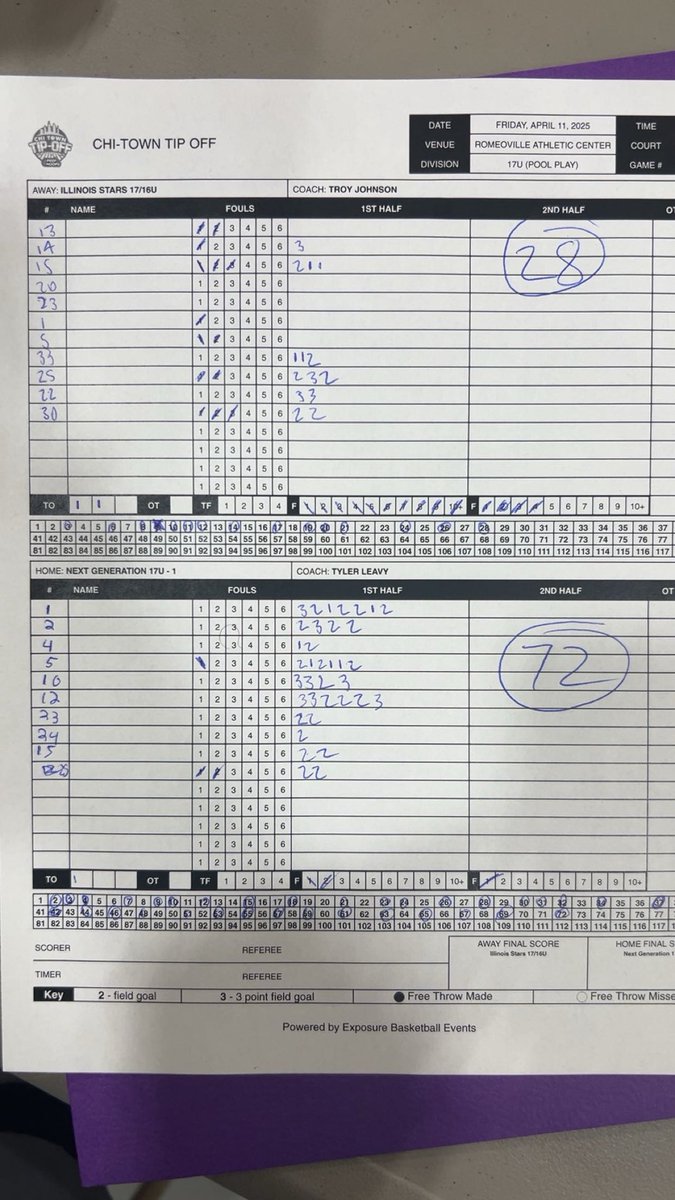 CHI TOWN TIP-OFF
CHI-TOWN TIP OFF
DATE FRIDAY, APRIL 11, 2025 TIME
VENUE ROMEOVILLE ATHLETIC CENTER COURT
DIVISION 17U (POOL PLAY) GAME #
AWAY: ILLINOIS STARS 17/16U COACH: TROY JOHNSON
# NAME FOULS 1ST HALF 2ND HALF OT
13 1 2 3 4 5 6
14 1 2 3 4 5 6 3
15 1 2 3 4 5 6 211
20 1 2 3 4 5 6
23 1 2 3 4 5 6
1 1 2 3 4 5 6
5 1 2 3 4 5 6
33 1 2 3 4 5 6 112
25 1 2 3 4 5 6 232
22 1 2 3 4 5 6 33
30 1 2 3 4 5 6 22
1 2 3 4 5 6
1 2 3 4 5 6
1 2 3 4 5 6
1 2 3 4 5 6
28
TO 1 1 OT TF 1 2 3 4 F 1 2 3 4 5 6 7 8 9 10+ F 1 2 3 4 5 6 7 8 9 10+
1 2 3 4 5 6 7 8 9 10 11 12 13 14 15 16 17 18 19 20 21 22 23 24 25 26 27 28 29 30 31 32 33 34 35 36 37
41 42 43 44 45 46 47 48 49 50 51 52 53 54 55 56 57 58 59 60 61 62 63 64 65 66 67 68 69 70 71 72 73 74 75 76 77
81 82 83 84 85 86 87 88 89 90 91 92 93 94 95 96 97 98 99 100 101 102 103 104 105 106 107 108 109 110 111 112 113 114 115 116 117
HOME: NEXT GENERATION 17U - 1 COACH: TYLER LEAVY
# NAME FOULS 1ST HALF 2ND HALF OT
1 1 2 3 4 5 6 3212212
2 1 2 3 4 5 6 2322
4 1 2 3 4 5 6 12
5 1 2 3 4 5 6 212112
10 1 2 3 4 5 6 3323
12 1 2 3 4 5 6 332223
23 1 2 3 4 5 6 22
24 1 2 3 4 5 6 2
15 1 2 3 4 5 6 22
1 2 3 4 5 6 22
1 2 3 4 5 6
1 2 3 4 5 6
1 2 3 4 5 6
1 2 3 4 5 6
1 2 3 4 5 6
72
TO 1 OT TF 1 2 3 4 F 1 2 3 4 5 6 7 8 9 10+ F 1 2 3 4 5 6 7 8 9 10+
1 2 3 4 5 6 7 8 9 10 11 12 13 14 15 16 17 18 19 20 21 22 23 24 25 26 27 28 29 30 31 32 33 34 35 36 37
41 42 43 44 45 46 47 48 49 50 51 52 53 54 55 56 57 58 59 60 61 62 63 64 65 66 67 68 69 70 71 72 73 74 75 76 77
81 82 83 84 85 86 87 88 89 90 91 92 93 94 95 96 97 98 99 100 101 102 103 104 105 106 107 108 109 110 111 112 113 114 115 116 117
SCORER REFEREE AWAY FINAL SCORE HOME FINAL S
Illinois Stars 17/16U Next Generation 1
TIMER REFEREE
Key 2 - field goal 3 - 3 point field goal Free Throw Made Free Throw Misse
Powered by Exposure Basketball Events